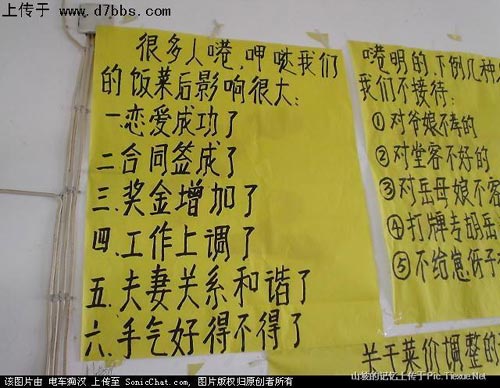 上传于 www.d7bbs.com
很多人 .呷哒我们
的饭菜后影响很大:
一恋爱成功了
二合同签成了
三.奖金增加了
四.工作上调了
五.夫妻关系和谐了
六.手气好得不得了
明的.下例几种
我们不接待:
①对爷娘不孝的
②对堂客不好的
③对岳母娘不客
④打牌专胡岳
⑤不给崽伢子
关于菜价调整的
图片由 电车痴汉 上传至 SonicChat.com, 图片版权归原创者所有
的记忆上传于Pic.Tiexue.Net